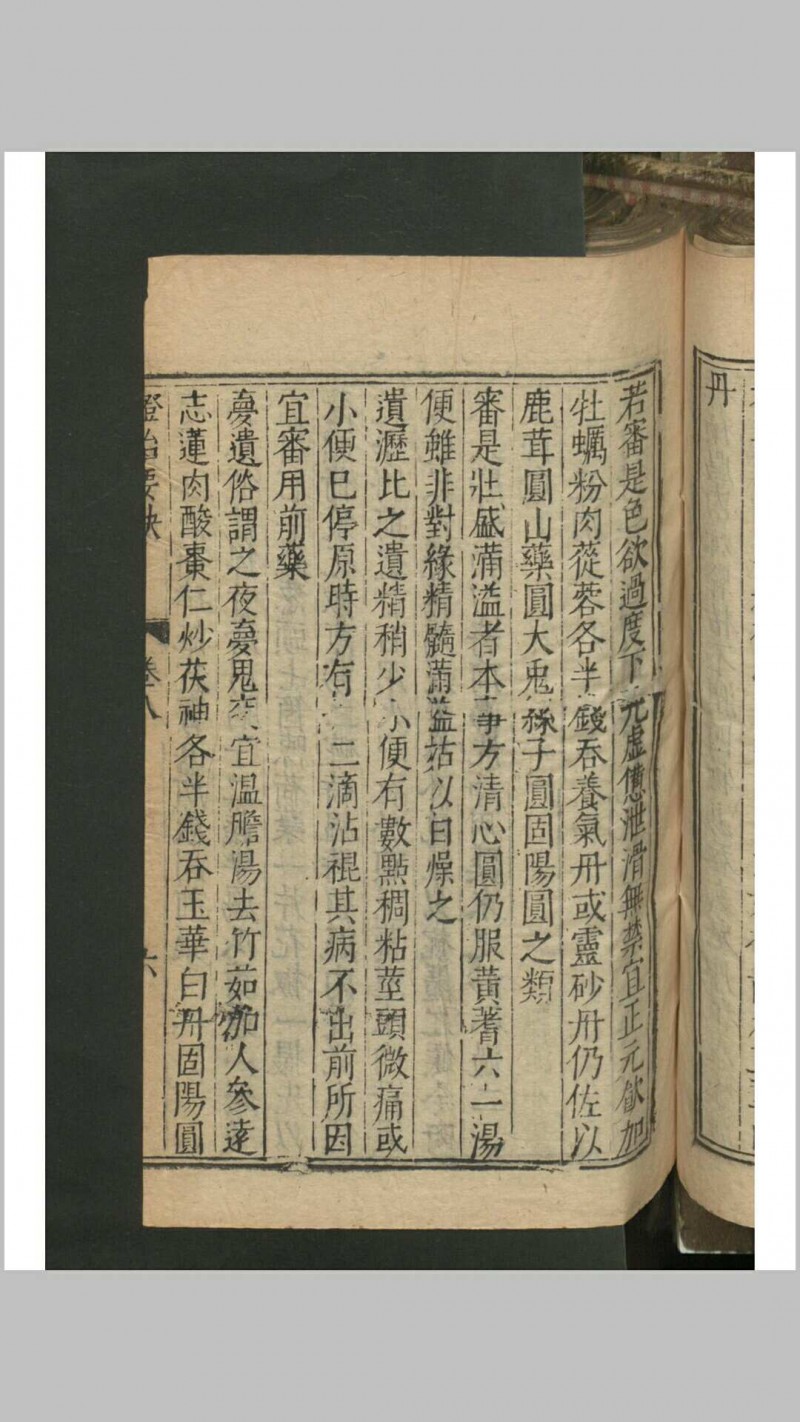 丹
若審是色欲過度下元虛憊泄滑無禁宜正元飲加
牡蠣粉肉蓯蓉各半錢吞養氣丹或靈砂丹仍佐以
鹿茸圓山藥圓大兎絲子圓固陽圓之類
審是壯盛滿溢者本事方清心圓仍服黃蓍六一湯
便雖非對緣精髓滿溢姑以自燥之
遺瀝比之遺精稍少小便有數點稠粘莖頭微痛或
小便已停原時方有二滴沾裩其病不出前所因
宜審用前藥
夢遺俗謂之夜夢鬼交宜温膽湯去竹茹加人參遠
志蓮肉酸棗仁炒茯神各半錢吞玉華白丹固陽圓
證治要訣
卷八
六